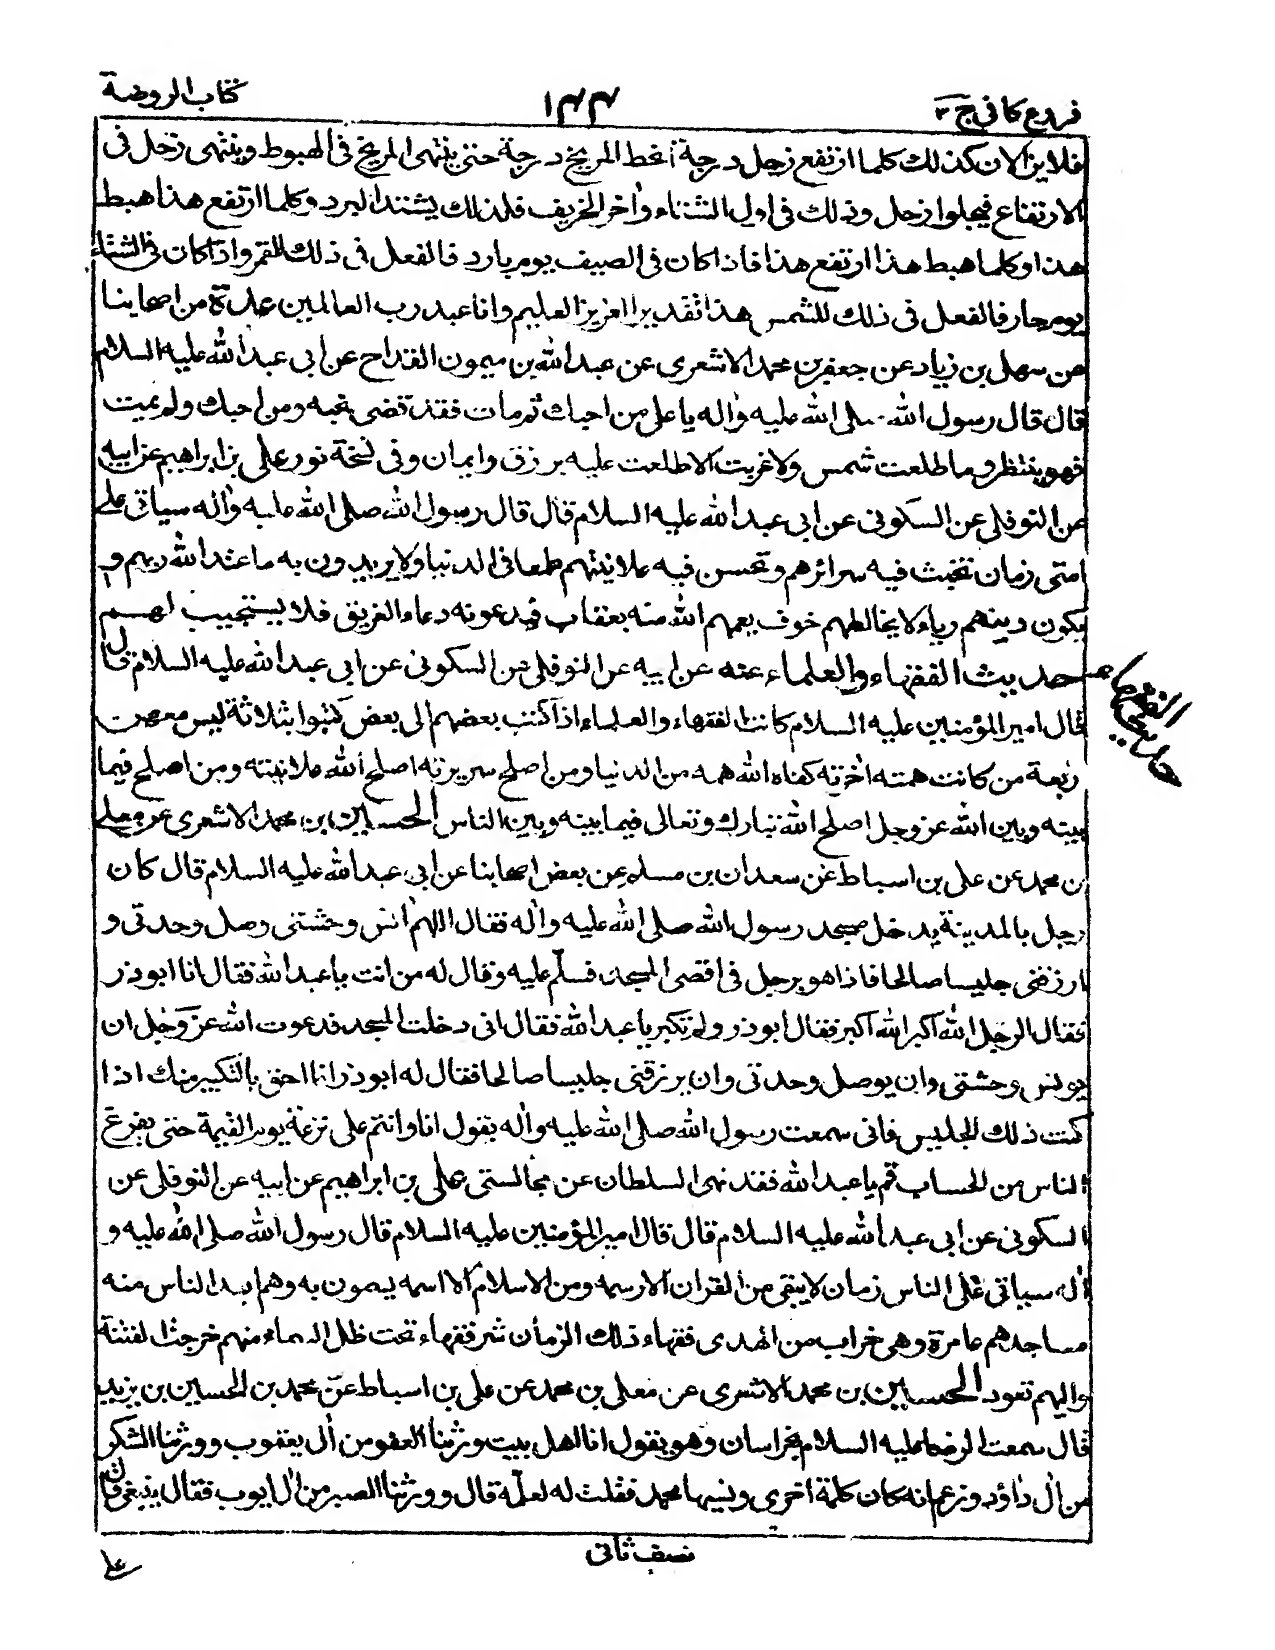 فروع كافى ج ٣
١٤٤
كتاب الروضة
فلا يزالان كذلك كلما ارتفع زحل درجة انحط المريخ درجة حتى ينتهى المريخ فى الهبوط وينتهى زحل فى
الارتفاع فيجلوا زحل وذلك فى اول الشتاء وأخر الخريف فلذلك يشتد البرد وكلما ارتفع هذا هبط
هذا وكلما هبط هذا ارتفع هذا فاذا كان فى الصيف يوم بارد فالفعل فى ذلك للقمر واذا كان فى الشتاء
يوم حار فالفعل فى ذلك للشمس هذا تقدير العزيز العليم وانا عبد رب العالمين عدة من اصحابنا
عن سهل بن زياد عن جعفر بن محمد الاشعرى عن عبد الله بن ميمون القداح عن ابى عبد الله عليه السلام
قال قال رسول الله صلى الله عليه وأله يا على من احبك ثم مات فقد قضى نحبه ومن احبك ولم يمت
فهو ينتظر وما طلعت شمس ولا غربت الا طلعت عليه برزق وايمان وفى نسخة نور على بن ابراهيم عن ابيه
عن النوفلى عن السكونى عن ابى عبد الله عليه السلام قال قال رسول الله صلى الله عليه وأله سياتى على
امتى زمان تخبث فيه سرائرهم وتحسن فيه علانيتهم طمعا فى الدنيا ولا يريدون به ما عند الله ربهم و
يكون دينهم رياء لا يخالطهم خوف يعمهم الله منه بعقاب فيدعونه دعاء الغريق فلا يستجيب لهم
حديث الفقهاء والعلماء عنه عن ابيه عن النوفلى عن السكونى عن ابى عبد الله عليه السلام قال
قال امير المؤمنين عليه السلام كانت الفقهاء والعلماء اذا كتب بعضهم الى بعض كتبوا بثلاثة ليس معهن
رابعة من كانت همته أخرته كفاه الله همه من الدنيا ومن اصلح سريرته اصلح الله علانيته ومن اصلح فيما
بينه وبين الله عز وجل اصلح الله تبارك وتعالى فيما بينه وبين الناس الحسين بن محمد الاشعرى عن معلى
بن محمد عن على بن اسباط عن سعدان بن مسلم عن بعض اصحابنا عن ابى عبد الله عليه السلام قال كان
رجل بالمدينة يدخل مسجد رسول الله صلى الله عليه وأله فقال اللهم أنس وحشتى وصل وحدتى و
ارزقنى جليسا صالحا فاذا هو برجل فى اقصى المسجد فسلم عليه وقال له من انت يا عبد الله فقال انا ابو ذر
فقال الرجل الله اكبر الله اكبر فقال ابو ذر ولم تكبر يا عبد الله فقال انى دخلت المسجد فدعوت الله عز وجل ان
يونس وحشتى وان يوصل وحدتى وان يرزقنى جليسا صالحا فقال له ابو ذر انا احق بالتكبير منك اذا
كنت ذلك الجليس فانى سمعت رسول الله صلى الله عليه وأله يقول انا وانتم على ترعة يوم القيمة حتى يفرغ
الناس من الحساب قم يا عبد الله فقد نهى السلطان عن مجالستى على بن ابراهيم عن ابيه عن النوفلى عن
السكونى عن ابى عبد الله عليه السلام قال قال امير المؤمنين عليه السلام قال رسول الله صلى الله عليه و
أله سياتى على الناس زمان لا يبقى من القران الا رسمه ومن الاسلام الا اسمه يسمون به وهم ابعد الناس منه
مساجدهم عامرة وهى خراب من الهدى فقهاء ذلك الزمان شر فقهاء تحت ظل السماء منهم خرجت الفتنة
واليهم تعود الحسين بن محمد الاشعرى عن معلى بن محمد عن على بن اسباط عن محمد بن الحسين بن يزيد
قال سمعت الرضا عليه السلام بخراسان وهو يقول انا اهل بيت ورثنا العفو من أل يعقوب وورثنا الشكر
من أل داؤد وزعم انه كان كلمة اخرى ونسيها محمد فقلت له لعله قال وورثنا الصبر من أل ايوب فقال ينبغى قال
حديث الفقهاء
نصف ثانى
على